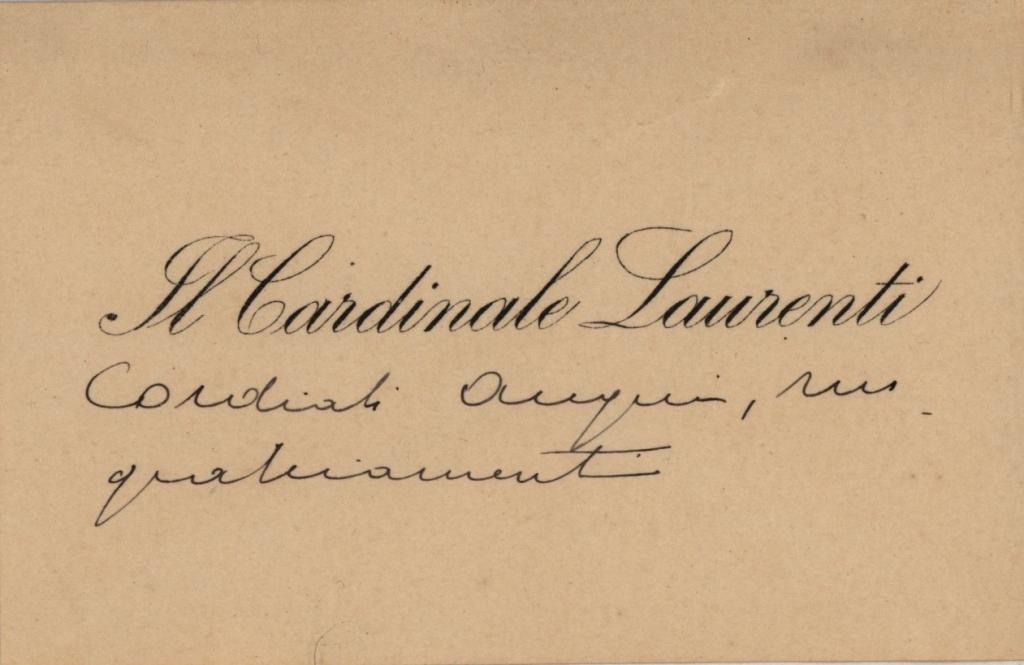 Il Cardinale Laurenti
Cordiali auguri, rin-
graziamenti